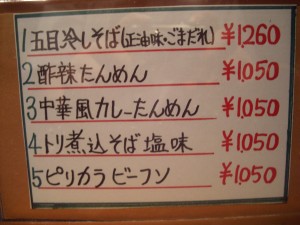 1五目冷しそば(正油味・ごまだれ) ¥1,260
2酢辣たんめん ¥1,050
3中華風カレーたんめん ¥1,050
4トリ煮込そば塩味 ¥1,050
5ピリカラビーフン ¥1,050